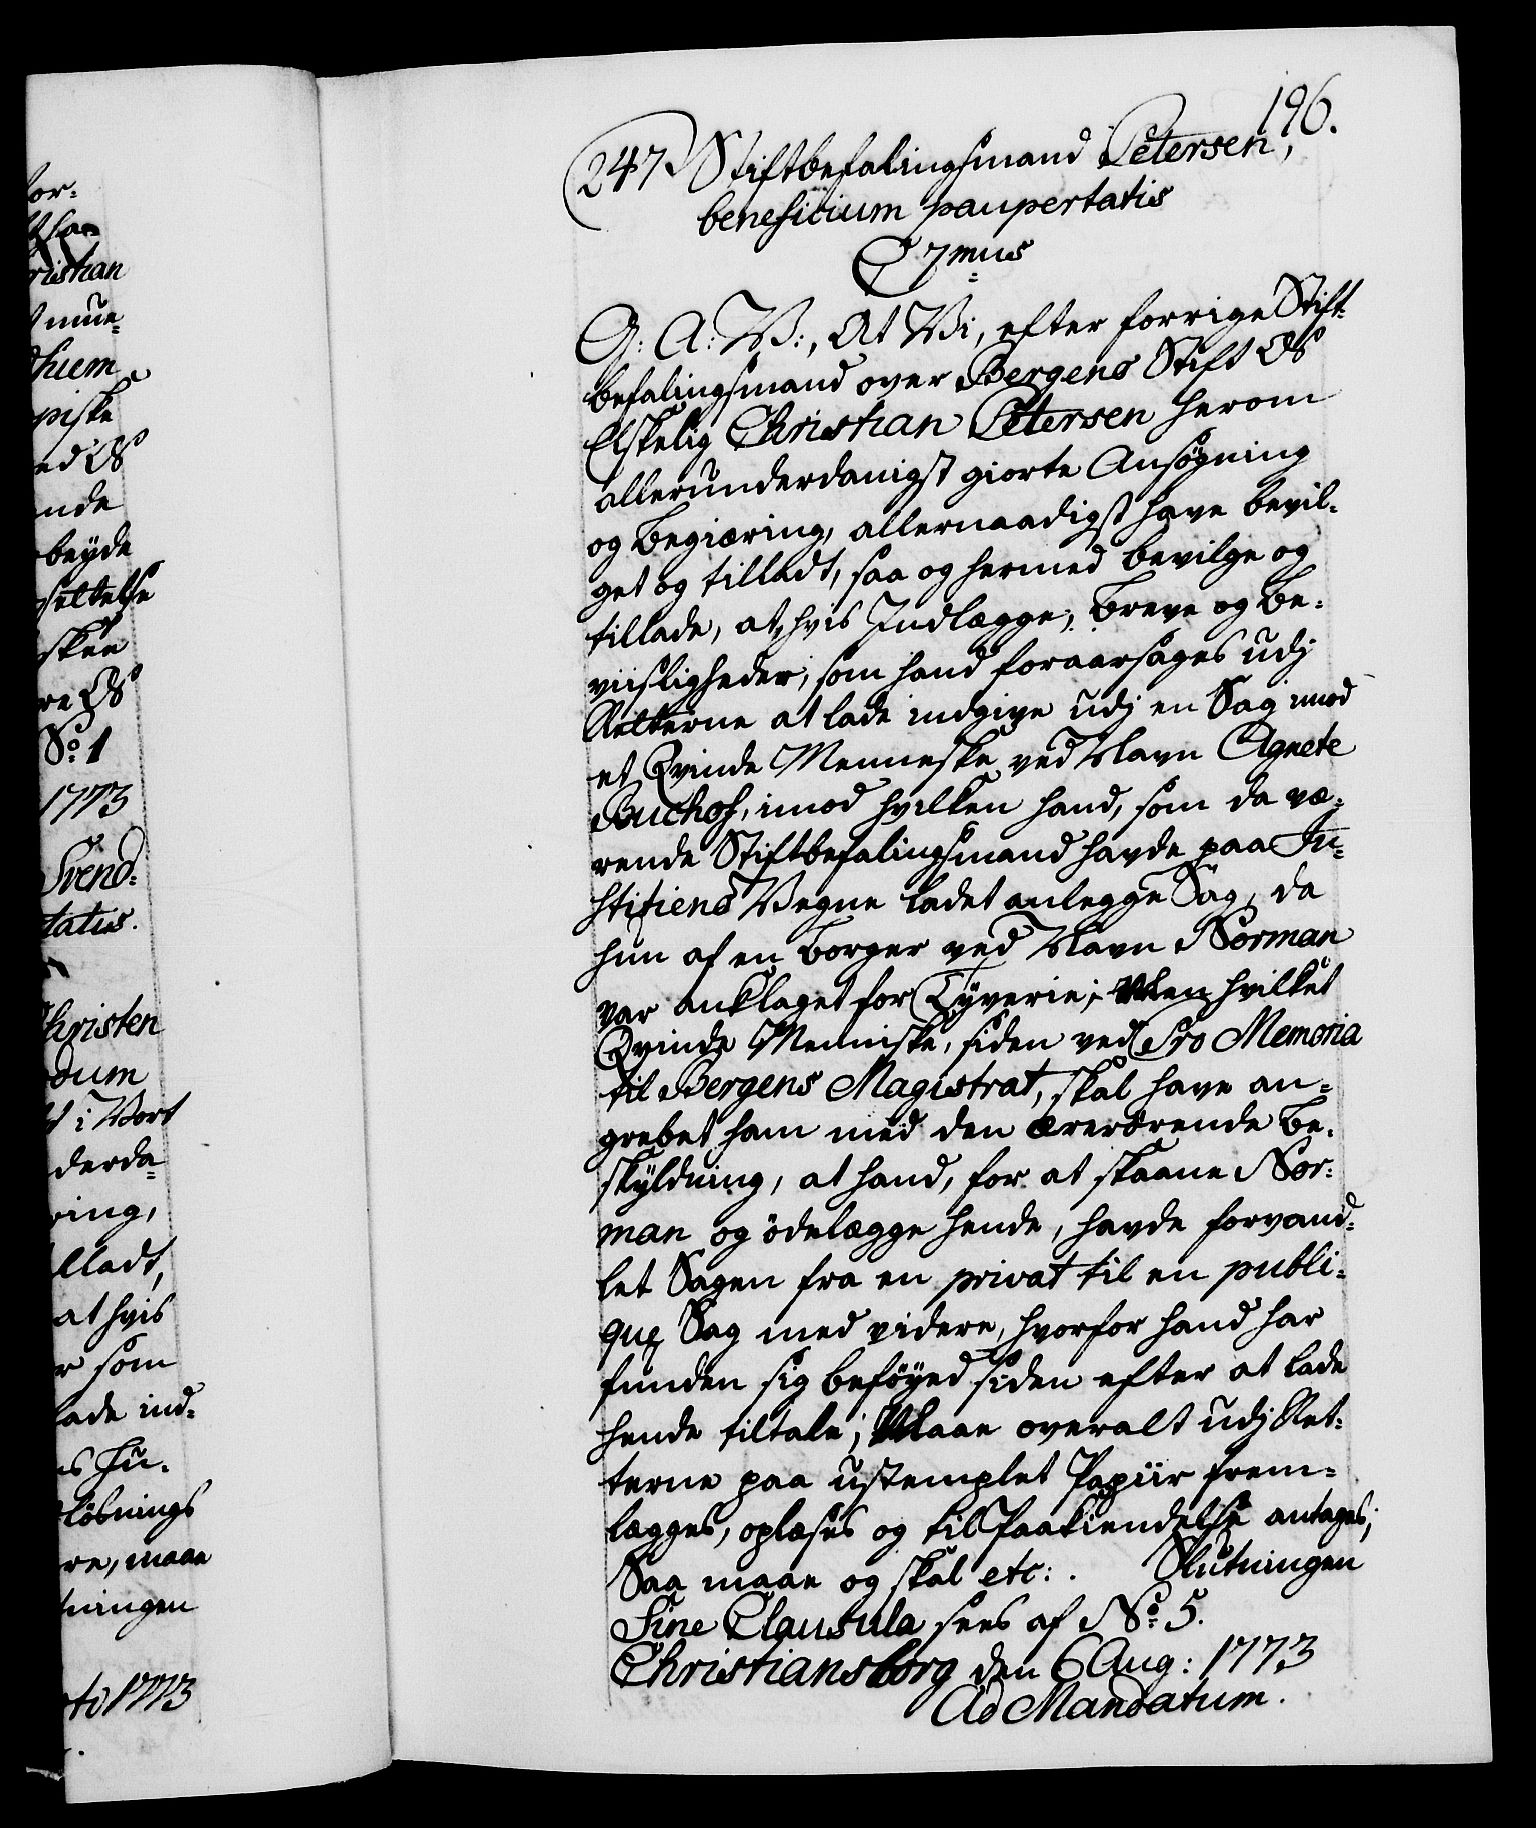 196.
247. Stiftbefalingsmand Petersen,
beneficium paupertatis
C 7mus
G: A: V:, At Vi, efter forrige Stift-
befalingsmand over Bergens Stift Os
Elskelig Christian Petersen herom
allerunderdanigst giorte Ansøgning
og Begiæring, allernaadigst have bevil-
get og tilladt, saa og hermed bevilge og
tillade, at hvis Indlægge, Breve og Be-
viisligheder, som hand foraarsages udj
Retterne at lade indgive udj en Sag imod
et Qvinde Menneske ved Navn Agnete
Buchhof, imod hvilken hand, som da væ-
rende Stiftbefalingsmand havde paa Ju-
stitiens Vegne ladet anlegge Sag, da
hun af en Borger ved Navn Norman
var anklaget for Tyverie; Men hvilket
Qvinde Menniske, siden ved Pro Memoria
til Bergens Magistrat, skal have an-
grebet ham med den ærerørende Be-
skyldning, at hand, for at skaane Nor-
man og ödelægge hende, havde forvand-
let Sagen fra en privat til en publi-
que Sag med videre, hvorfor hand har
funden sig beföyed siden efter at lade
hende tiltale; Maae overalt udj Ret-
terne paa ustemplet Papiir frem-
lægges, oplæses og til Paakiendelse antages;
Saa maae og skal etc: . Slutningen
Sine Clausula sees af No 5.
Christiansborg den 6 Aug: 1773
Ad Mandatum.
for-
ristian
mue-
hiem
piske
ed Os
nde
beyde
settelse
skee
re Os
No 1
1773
Svend-
tatis.
hristen
dum
i Vort
derda-
ring,
lladt,
at hvis
r som
lade ind-
s Ju-
lösnings
re, maae
tningen
to 1773